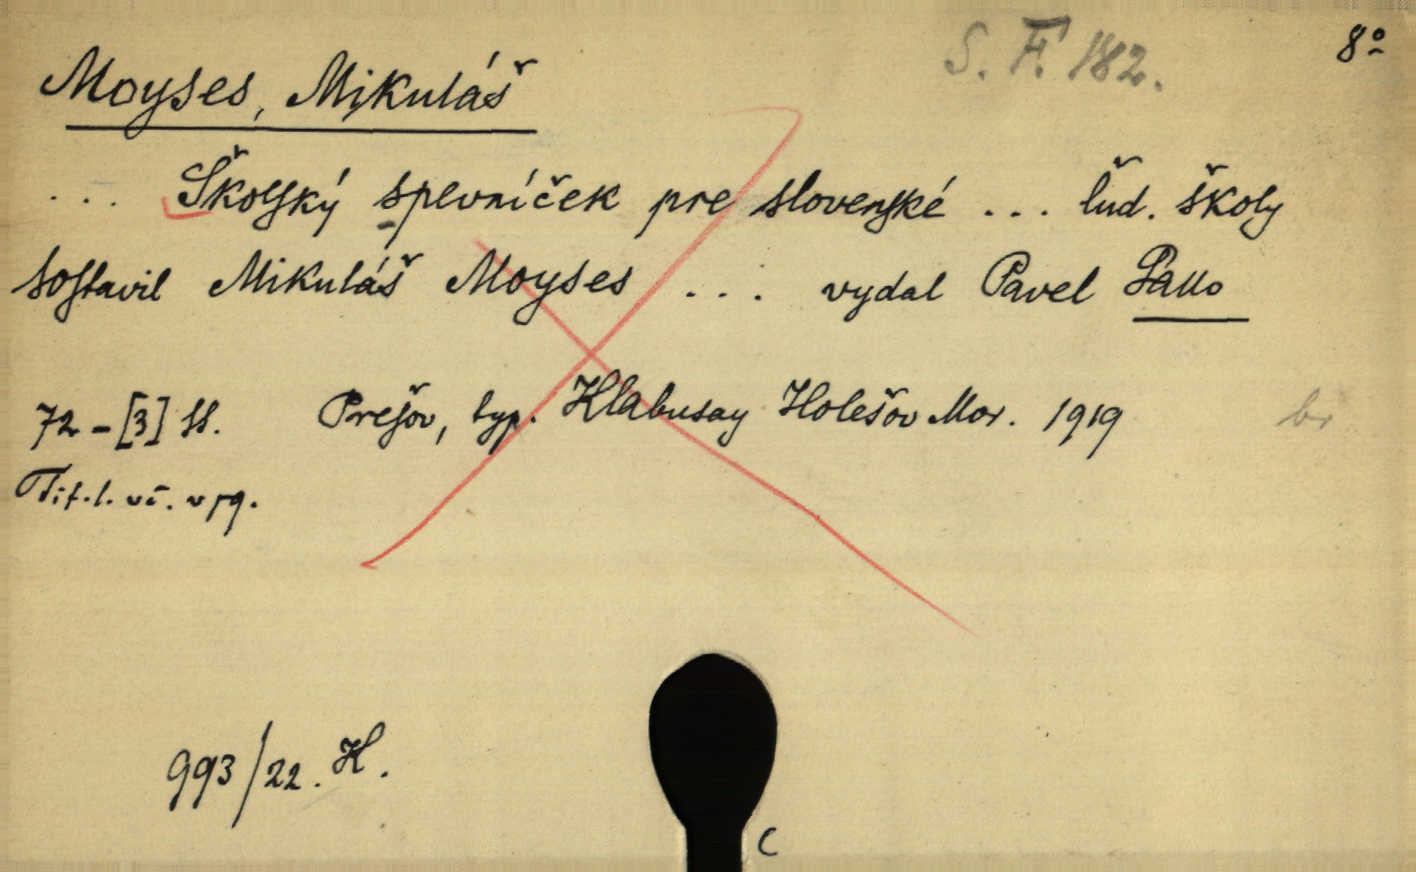 S. F. 182.
8º
Moyses, Mikuláš
... Školský spevníček pre slovenské ... ľud. školy
sostavil Mikuláš Moyses ... vydal Pavel Gallo
72-[3] ss. Prešov, typ. Klabusay Holešov Mor. 1919
br
Tit. l. vč. v pg.
993/22. H.
C